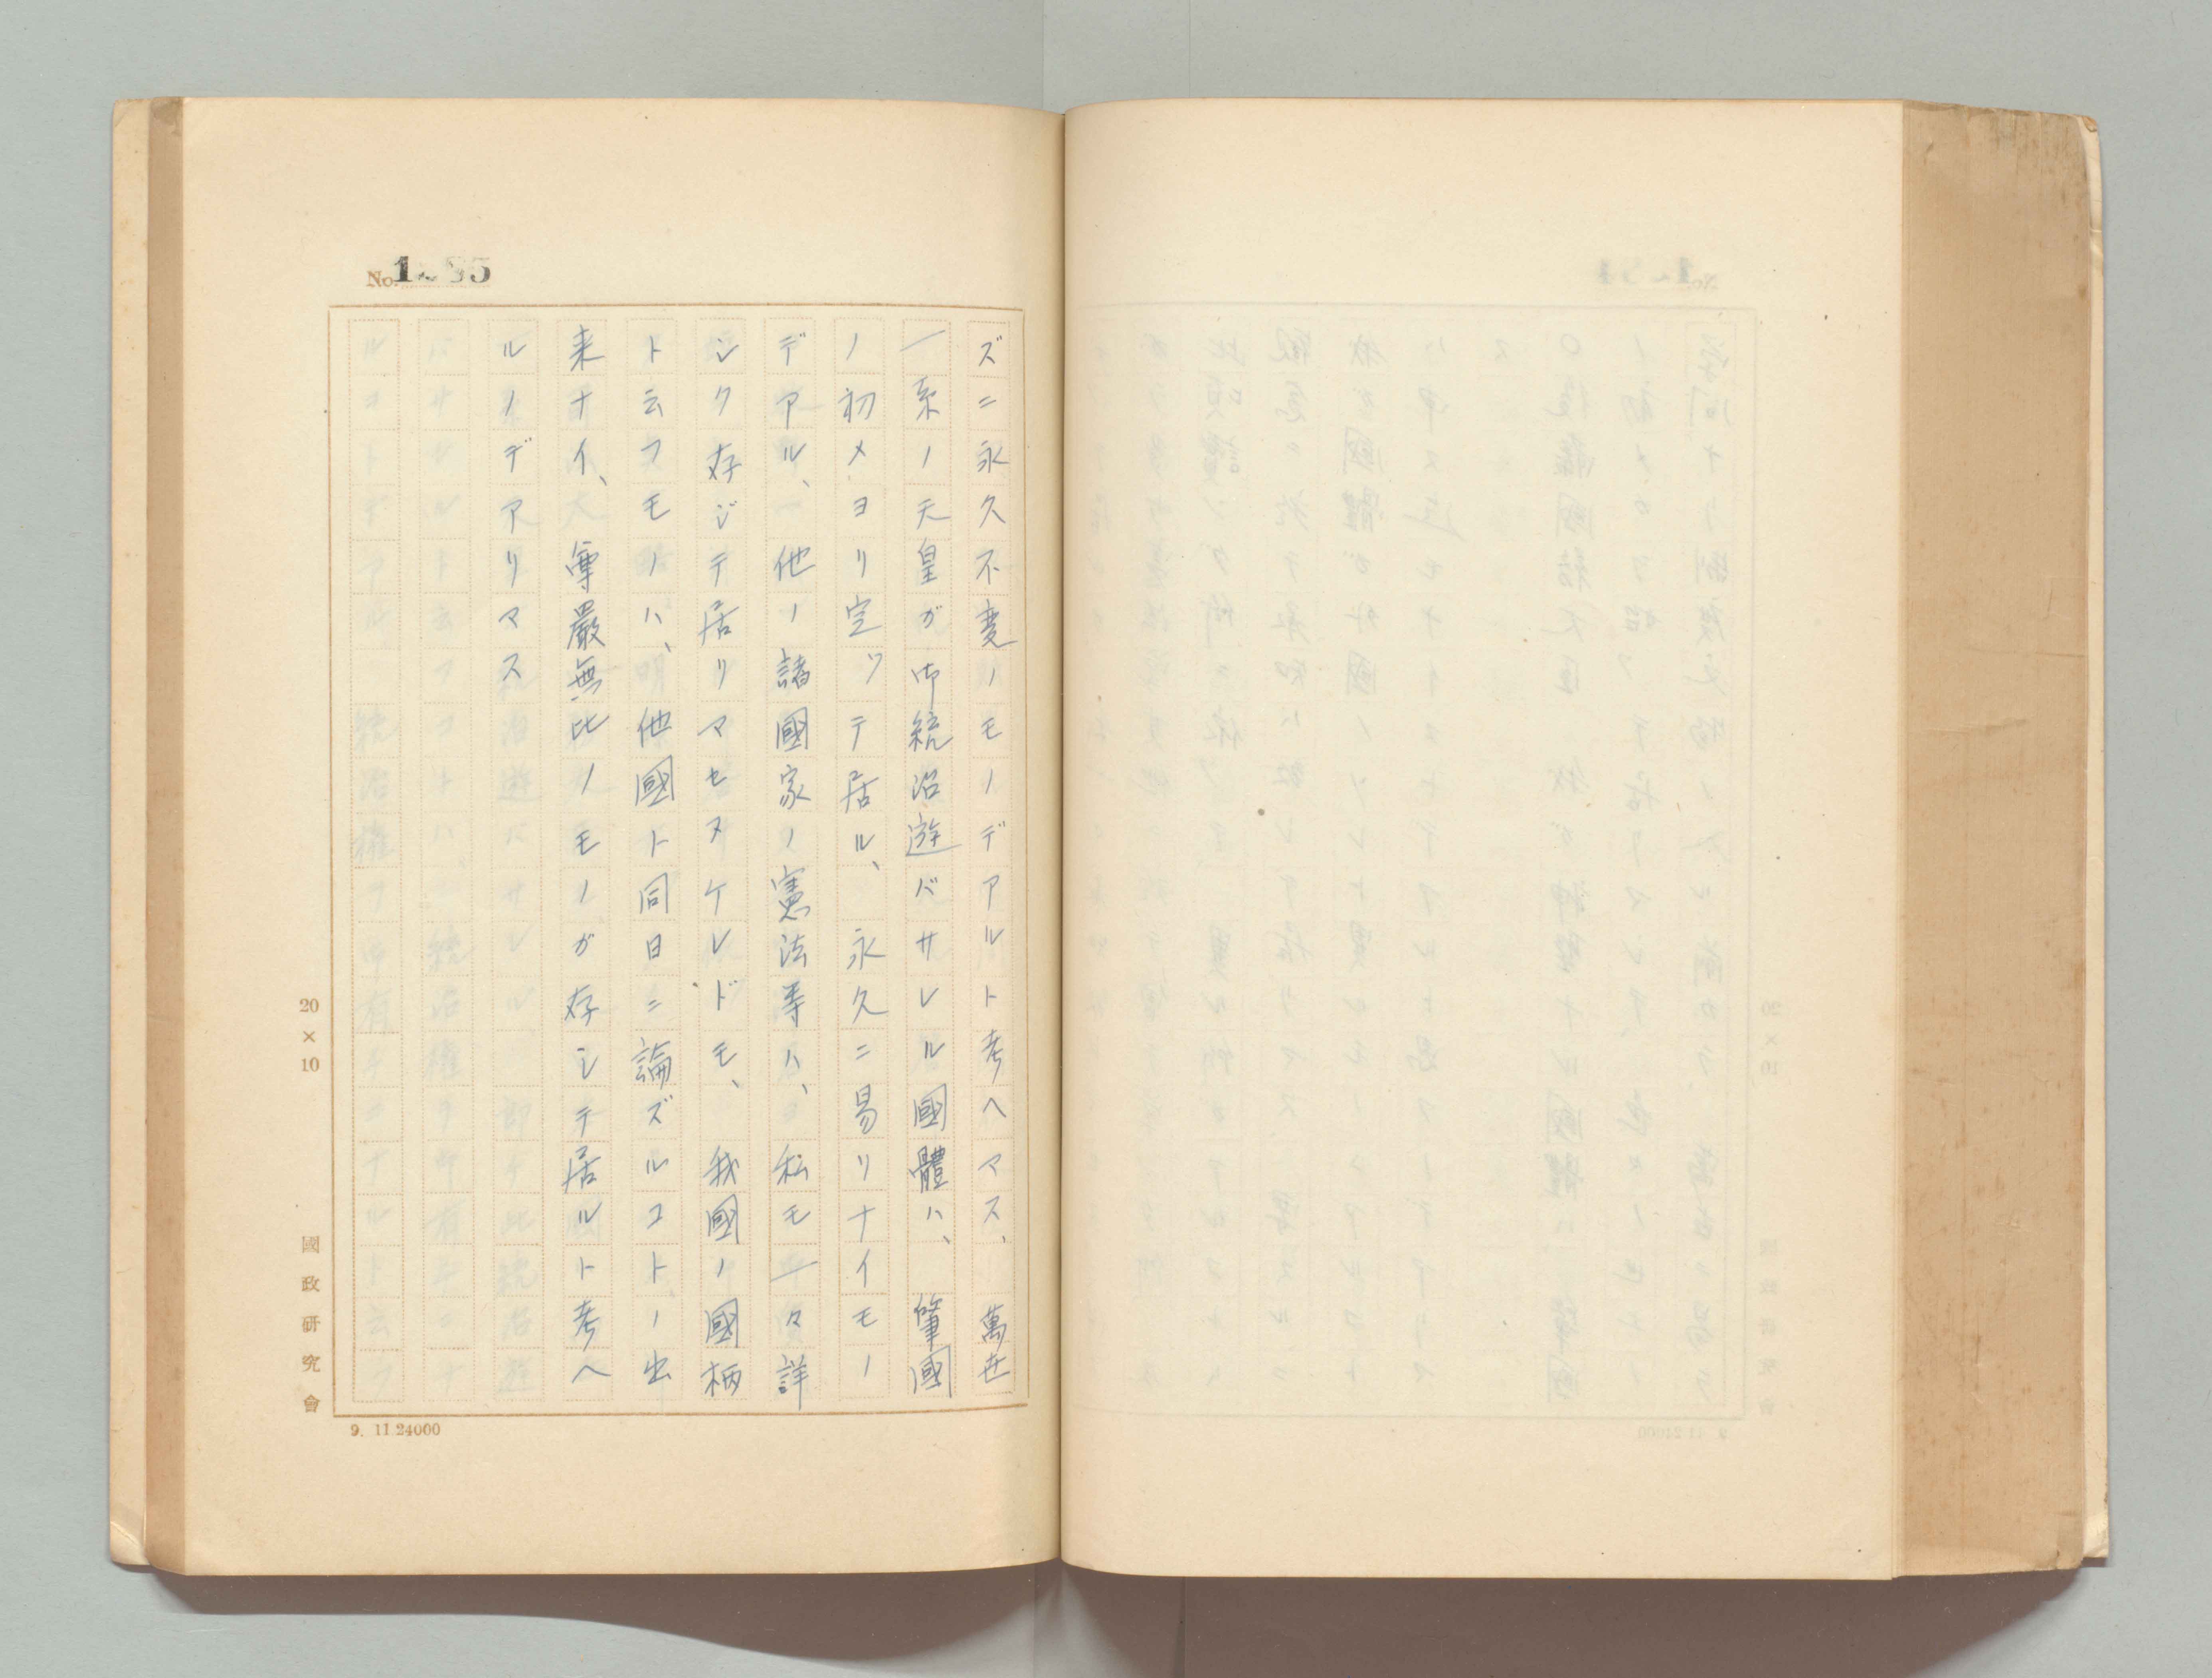 ズニ永久不変ノモノデアルト考ヘマス、萬世
一系ノ天皇ガ御統治遊バサレル國體ハ、肇國
ノ初メヨリ定ツテ居ル、永久ニ易リナイモノ
デアル、他ノ諸國家ノ憲法等ハ、私モ一々詳
シク存ジテ居リマセヌケレドモ、我國ノ國柄
ト云フモノハ、他國ト同日ニ論ズルコトノ出
来ナイ、尊嚴無比ノモノガ存シテ居ルト考ヘ
ルノデアリマス
20×10
國政研究會
9. 11 24000